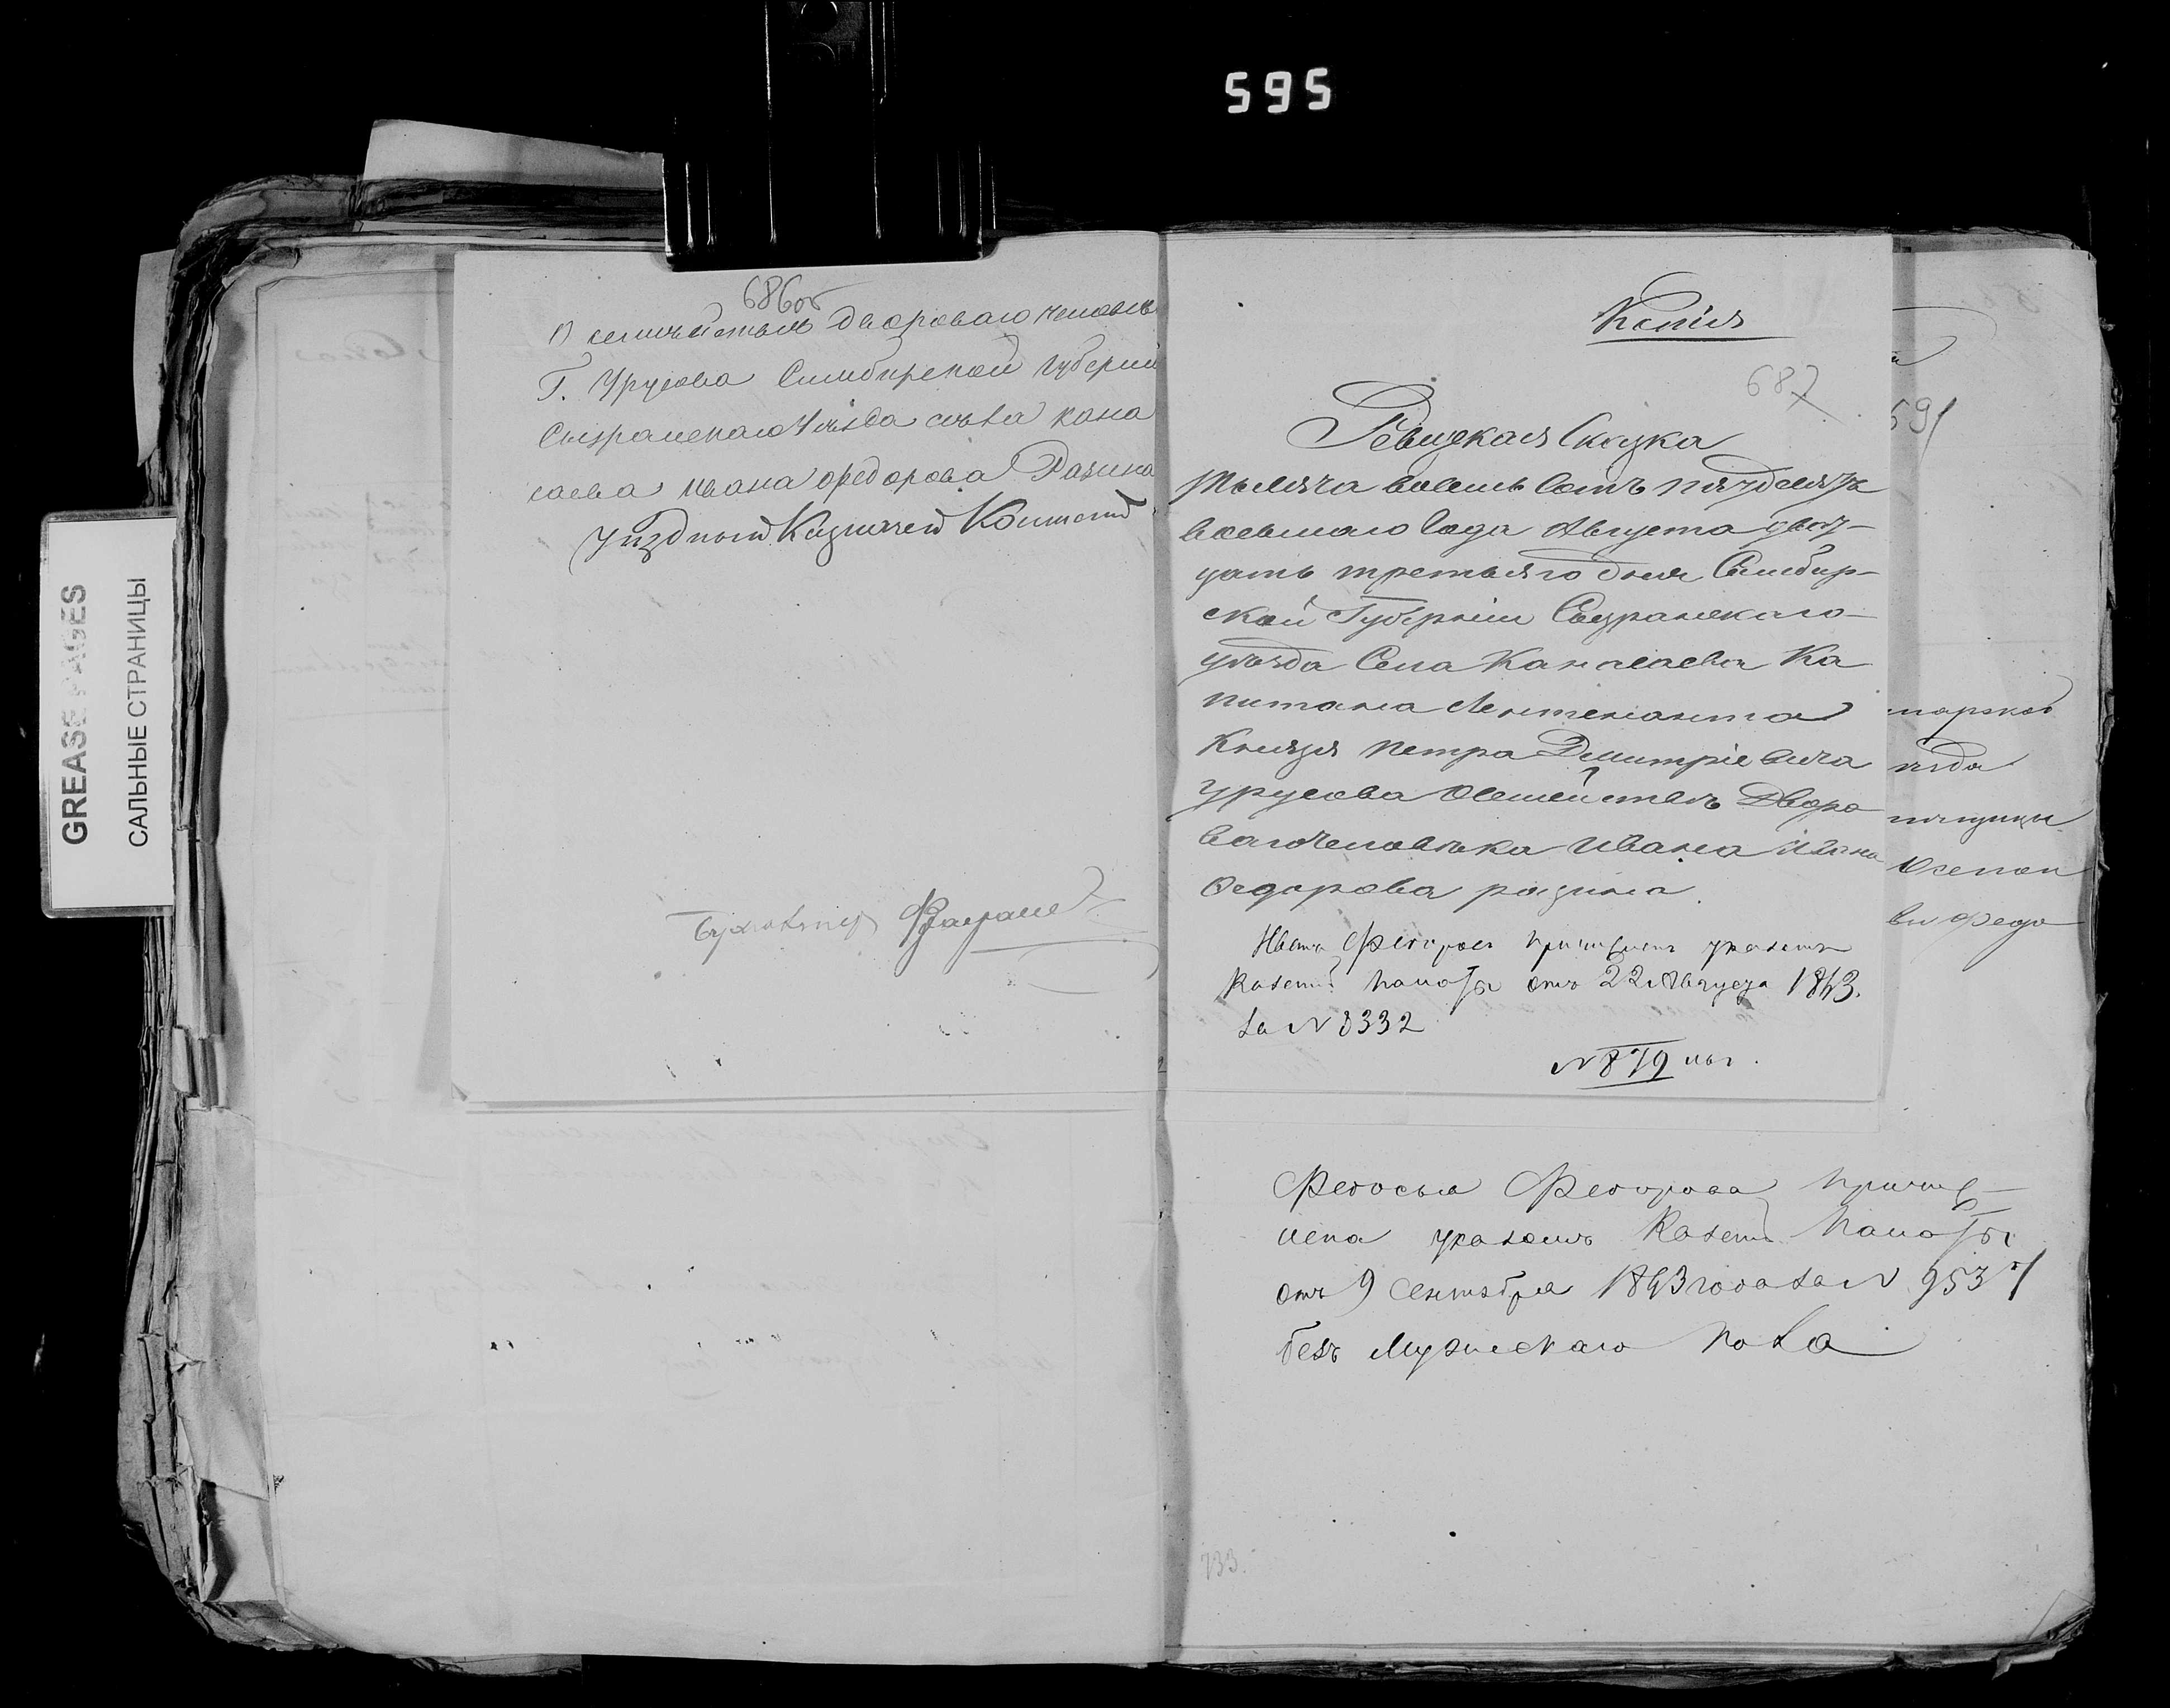 595
GREASE PAGES
САЛЬНЫЕ СТРАНИЦЫ
686об
О семействѣ двороваго человѣ
Г. Урусова Симбирской губерніи
Сызранскаго Уѣзда сѣла Кана
саева Ивана Федорова Разина
Уѣздный Казначей
Бухгалтер
Копія
687
Ревизская Сказка
тысяча восемь сотъ пятдесятъ
восьмаго года Августа двад-
цать третьяго дня Симбир-
ской Губерніи Сызранскаго
уѣзда Села Канасаева Ка
питана Лентенанта
Князя Петра Дмитріевича
Урусова О семействѣ Дворо
ваго человѣка Ивана Ивана
Федорова разина.
Иванъ Федоровъ причисленъ указомъ
Казен. палаты отъ 22 Августа 1863.
за № 8332
№ 879
591
нарской
ѣзда
Федо
Федосья Федорова причис-
лена указомъ Казен. палаты
отъ 9 Сентября 1863 года за № 9537
безъ Мужескаго пола
733.